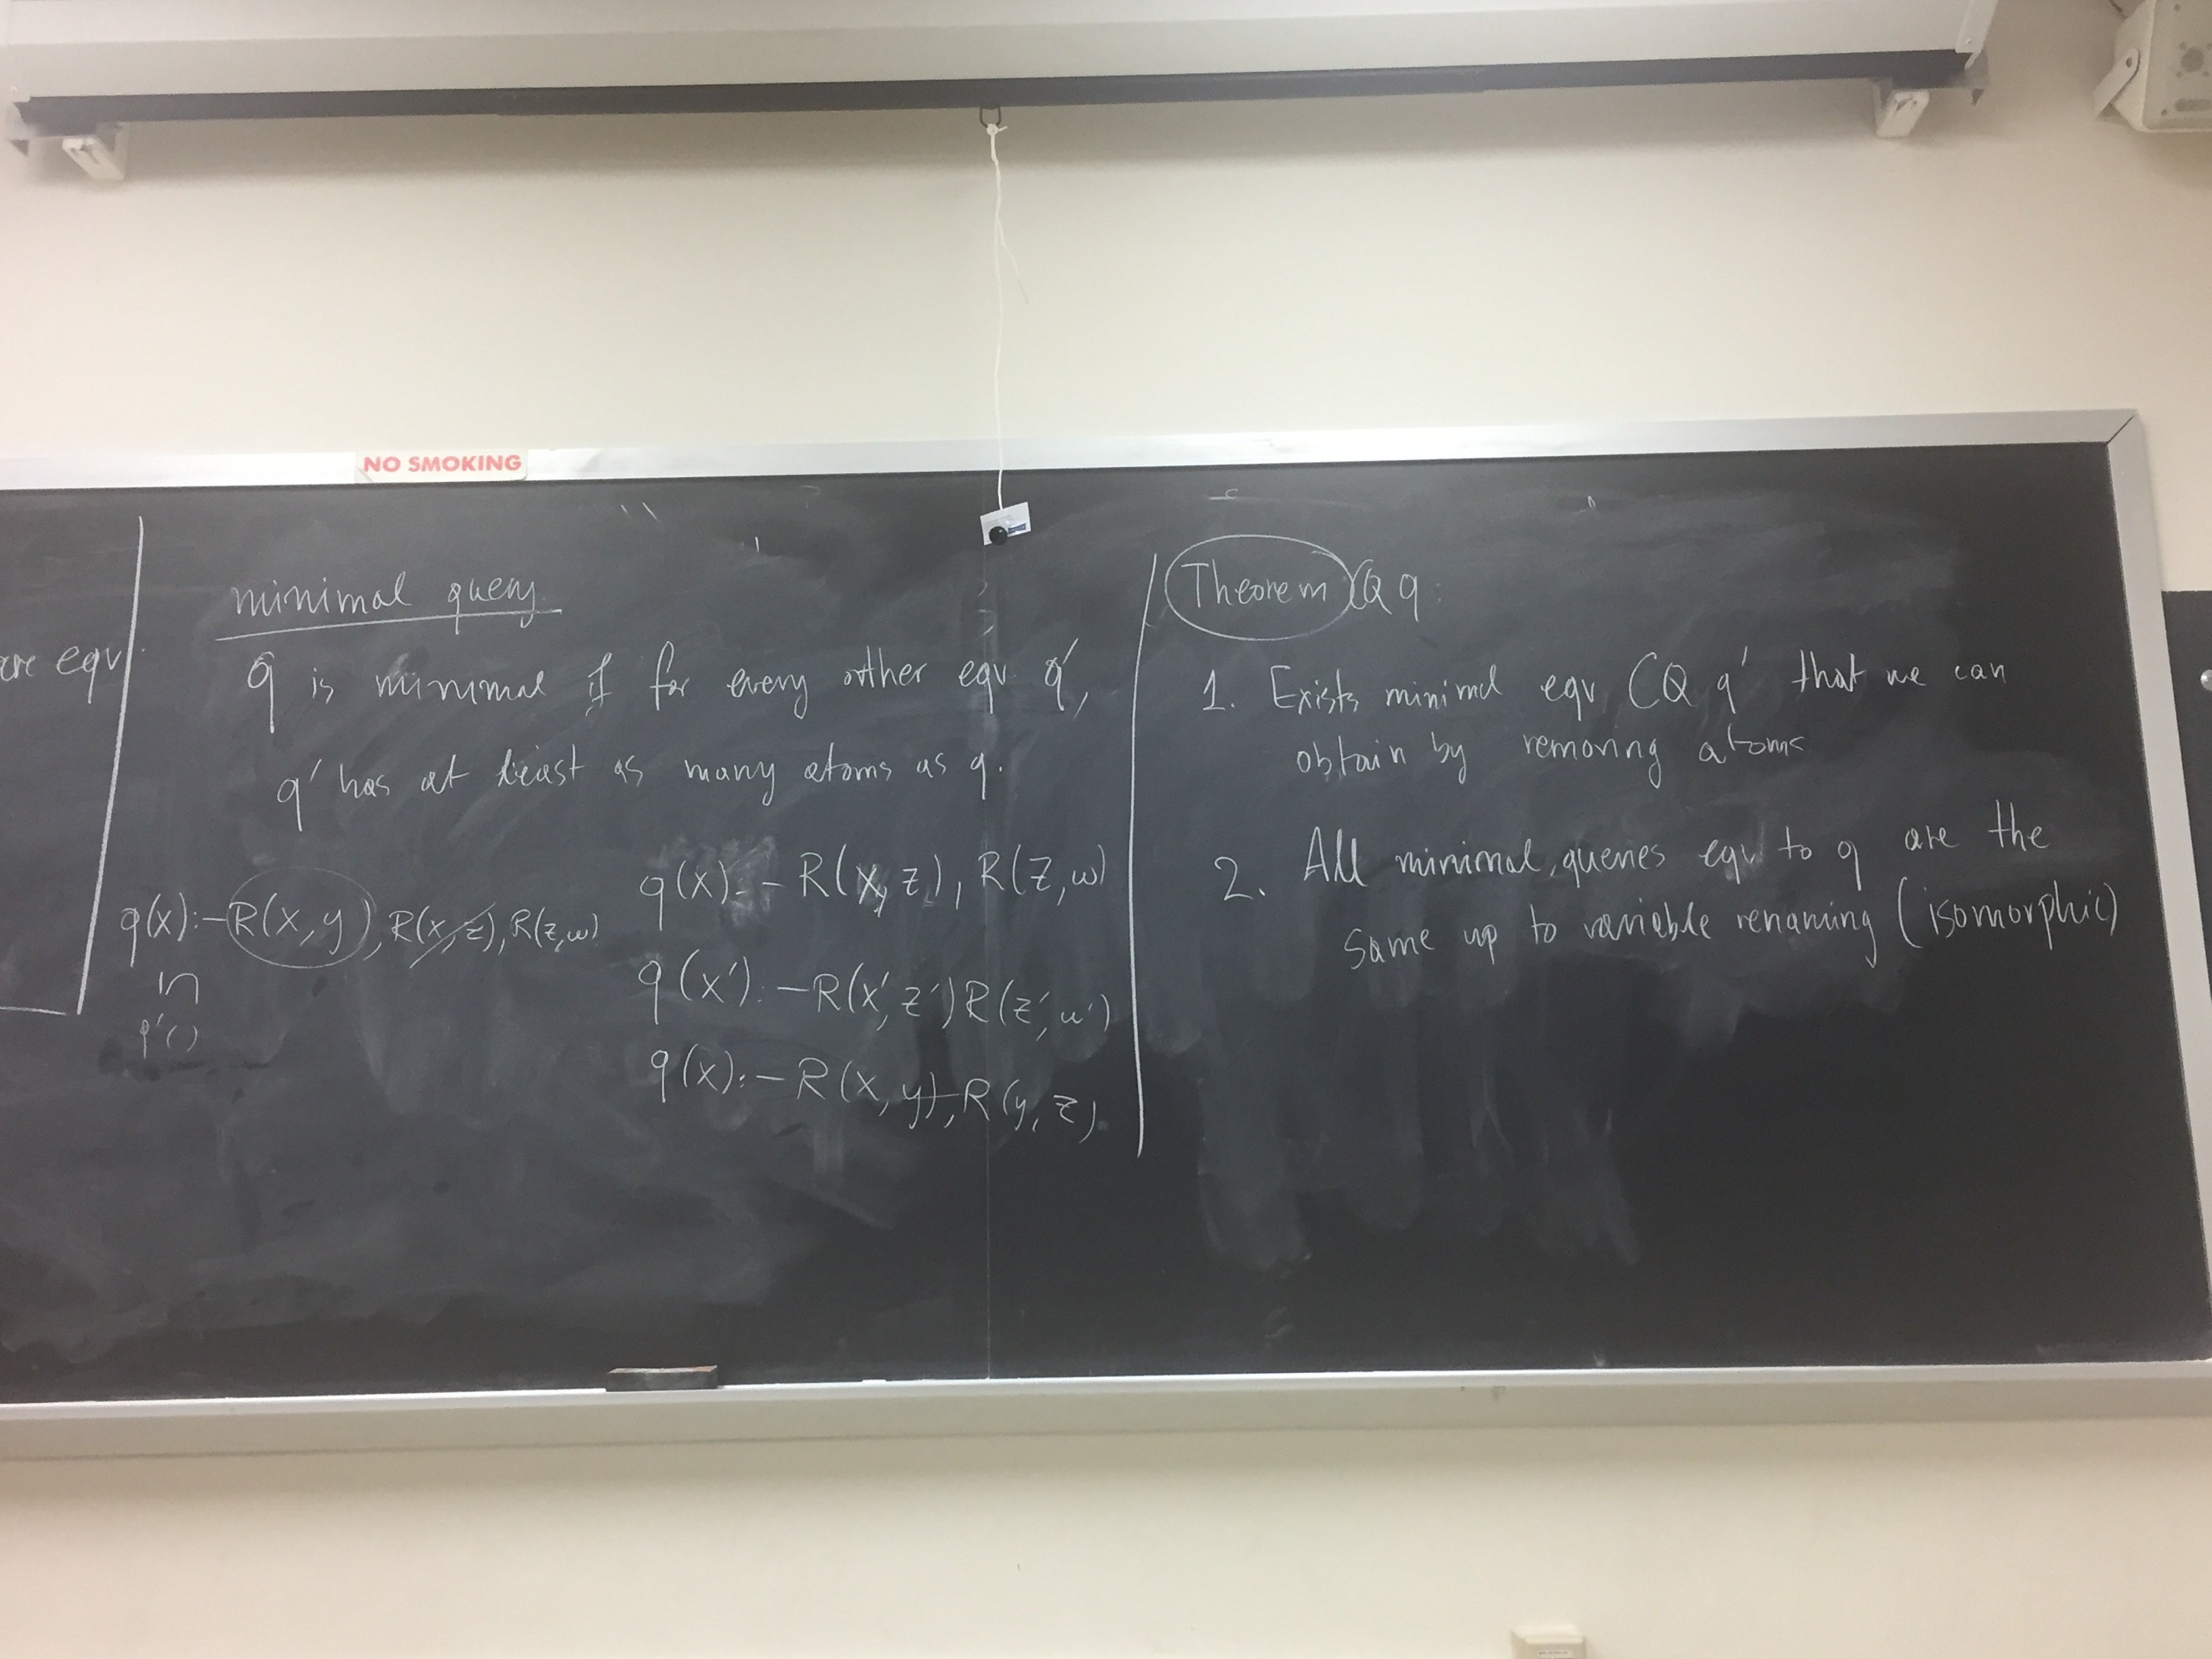 NO SMOKING
are equ.
minimal query
q is minimal if for every other equ. q',
q' has at least as many atoms as q.
q(x):-R(x,y), R(x,z), R(z,w)
q'()
q(x):- R(x,z), R(z,w)
q(x'):-R(x',z')R(z',w')
q(x):- R(x,y),R(y,z).
Theorem CQ q:
1. Exists minimal equ CQ q' that we can
obtain by removing atoms
2. All minimal queries equ to q are the
same up to variable renaming (isomorphic)